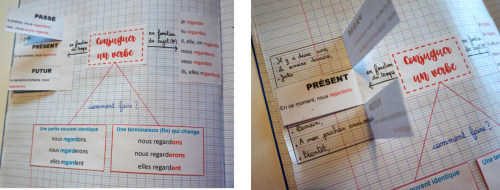 PASSÉ
Autrefois, nous regardions
PRÉSENT
En ce moment, nous regardons
FUTUR
La semaine prochaine, nous
regarderons
en fonction
du temps
Conjuguer
un verbe
en fonction
du sujet
je regarde
tu regardes
il, elle, on regarde
nous regardons
vous regardez
ils, elles regardent
comment faire ?
Une partie souvent identique
nous regardons
nous regarderons
elles regardent
Une terminaison (fin) qui change
nous regardons
nous regarderons
elles regardent
- Il y a deux ans,
- la semaine dernière,
- Jadis
PRÉSENT
En ce moment, nous regardons
- Demain,
- A mon prochain anniversaire
- Bientôt,
en fonction
du temps
Conjuguer
un verbe
comment faire ?
souvent identique
Une termin
regardons
nous